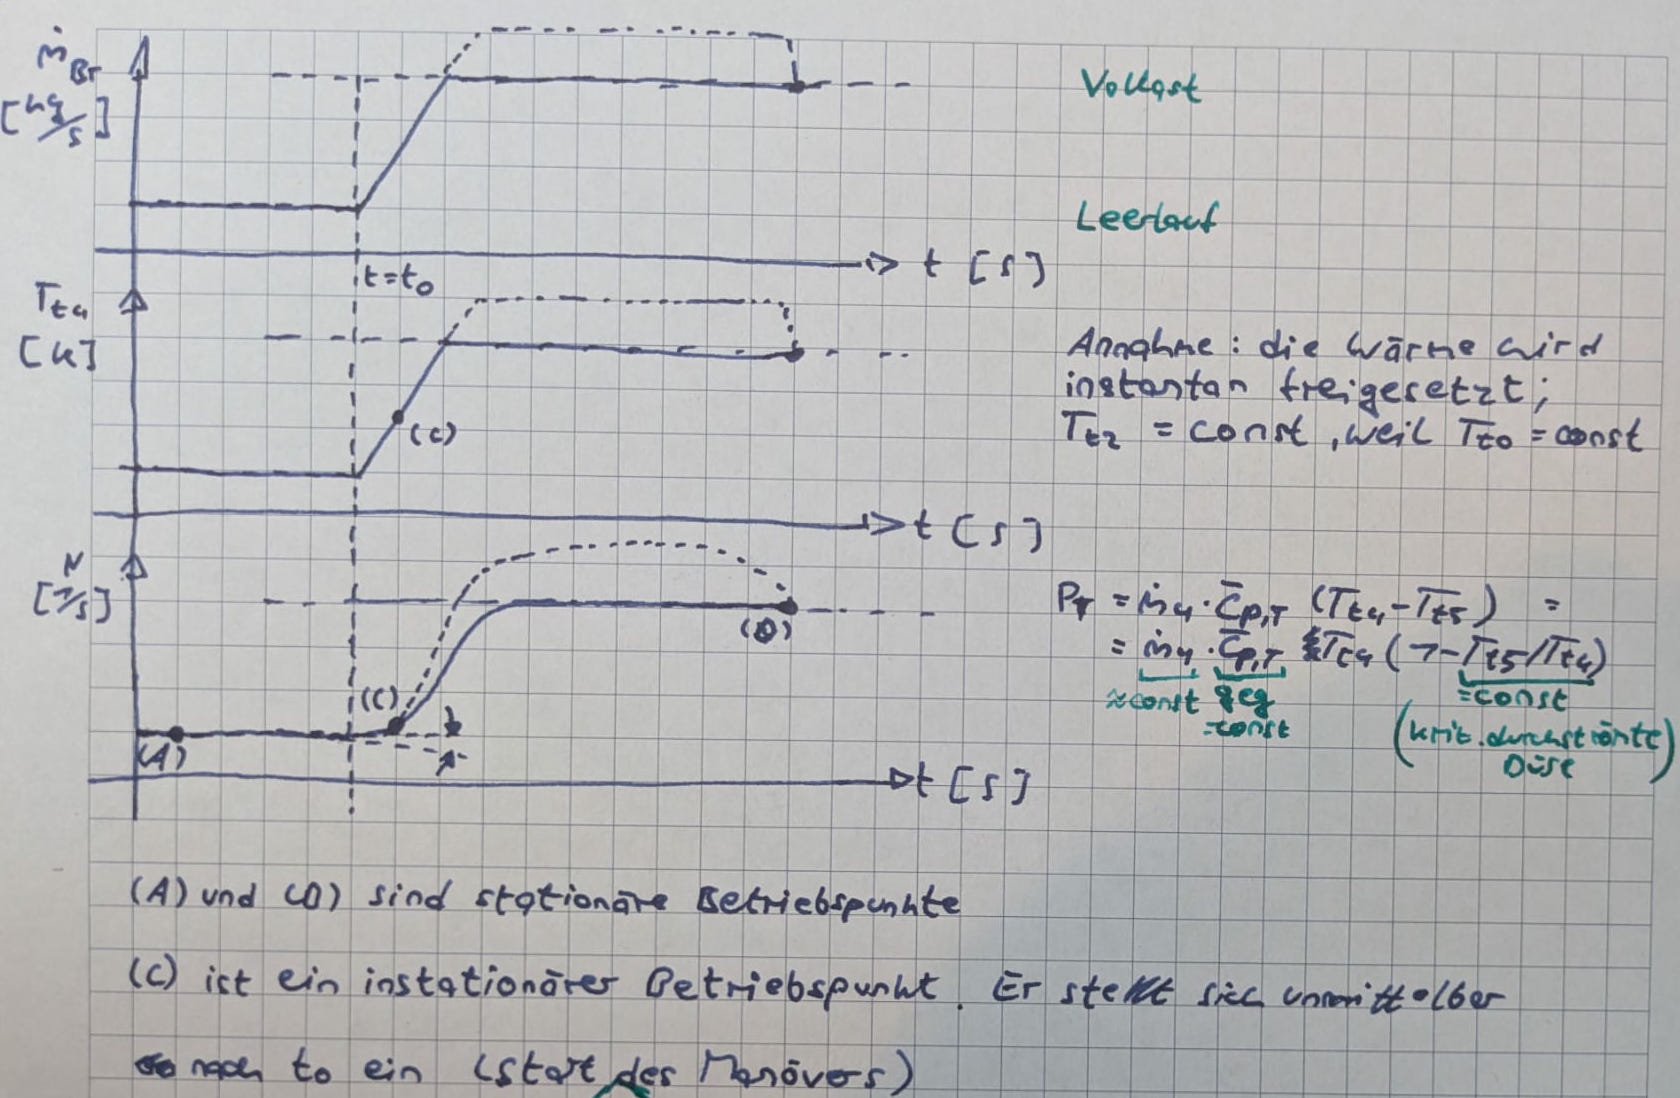 ṁ_Br
[kg/s]
Vollast
Leerlauf
t [s]
t=t₀
T_t4
[K]
(C)
Annahme: die Wärme wird
instantan freigesetzt;
T_t2 = const, weil T_t0 = const
t [s]
N
[1/s]
(D)
(C)
(A)
P_T = ṁ₄ · c̄_p,T (T_t4 - T_t5) =
= ṁ₄ · c̄_p,T T_t4 (1 - T_t5/T_t4)
≈const geg =const
=const (krit. durchströmte
Düse)
t [s]
(A) und (D) sind stationäre Betriebspunkte
(C) ist ein instationärer Betriebspunkt. Er stellt sich unmittelbar
nach t₀ ein (Start des Manövers)